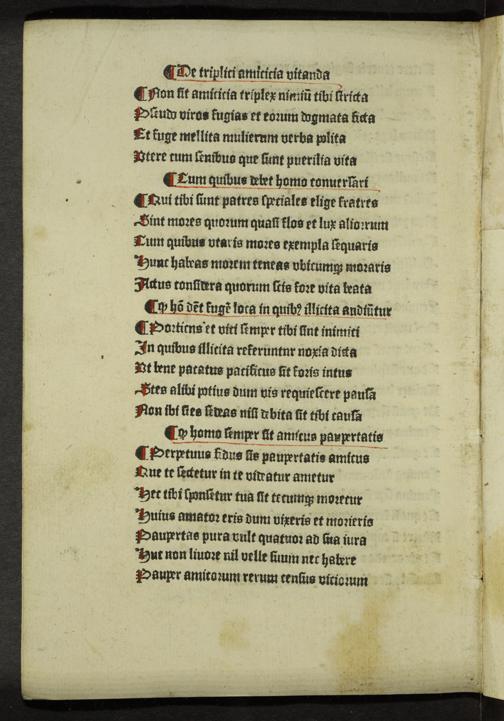 ¶De triplici amicicia vitanda
¶Non sit amicicia triplex nimiū tibi stricta
Pseudo viros fugias et eorum dogmata ficta
Et fuge mellita mulierum verba polita
Vtere cum senibus que sunt puerilia vita
¶Cum quibus debet homo conuersari
¶Qui tibi sunt patres speciales elige fratres
Sint mores quorum quasi flos et lux aliorum
Cum quibus vtaris mores exempla sequaris
Hunc habeas morem teneas vbicumqꝫ moraris
Actus considera quorum scis fore vita beata
¶Qꝫ hō dēt fugē loca in quibꝰ illicita audiūtur
¶Porticus et vici semper tibi sint inimici
In quibus illicita referuntur noxia dicta
Vt bene pacatus pacificus sit foris intus
Stes alibi potius dum vis requiescere pausa
Non ibi stes sedeas nisi debita sit tibi causa
¶Qꝫ homo semper sit amicus paupertatis
¶Perpetuus fidus sis paupertatis amicus
Que te sectetur in te videatur ametur
Hec tibi sponsetur tua sit tecumqꝫ moretur
Huius amator eris dum vixeris et morieris
Paupertas pura vult quatuor ad sua iura
Huc non liuore nil velle suum nec habere
Pauper amicorum rerum census viciorum